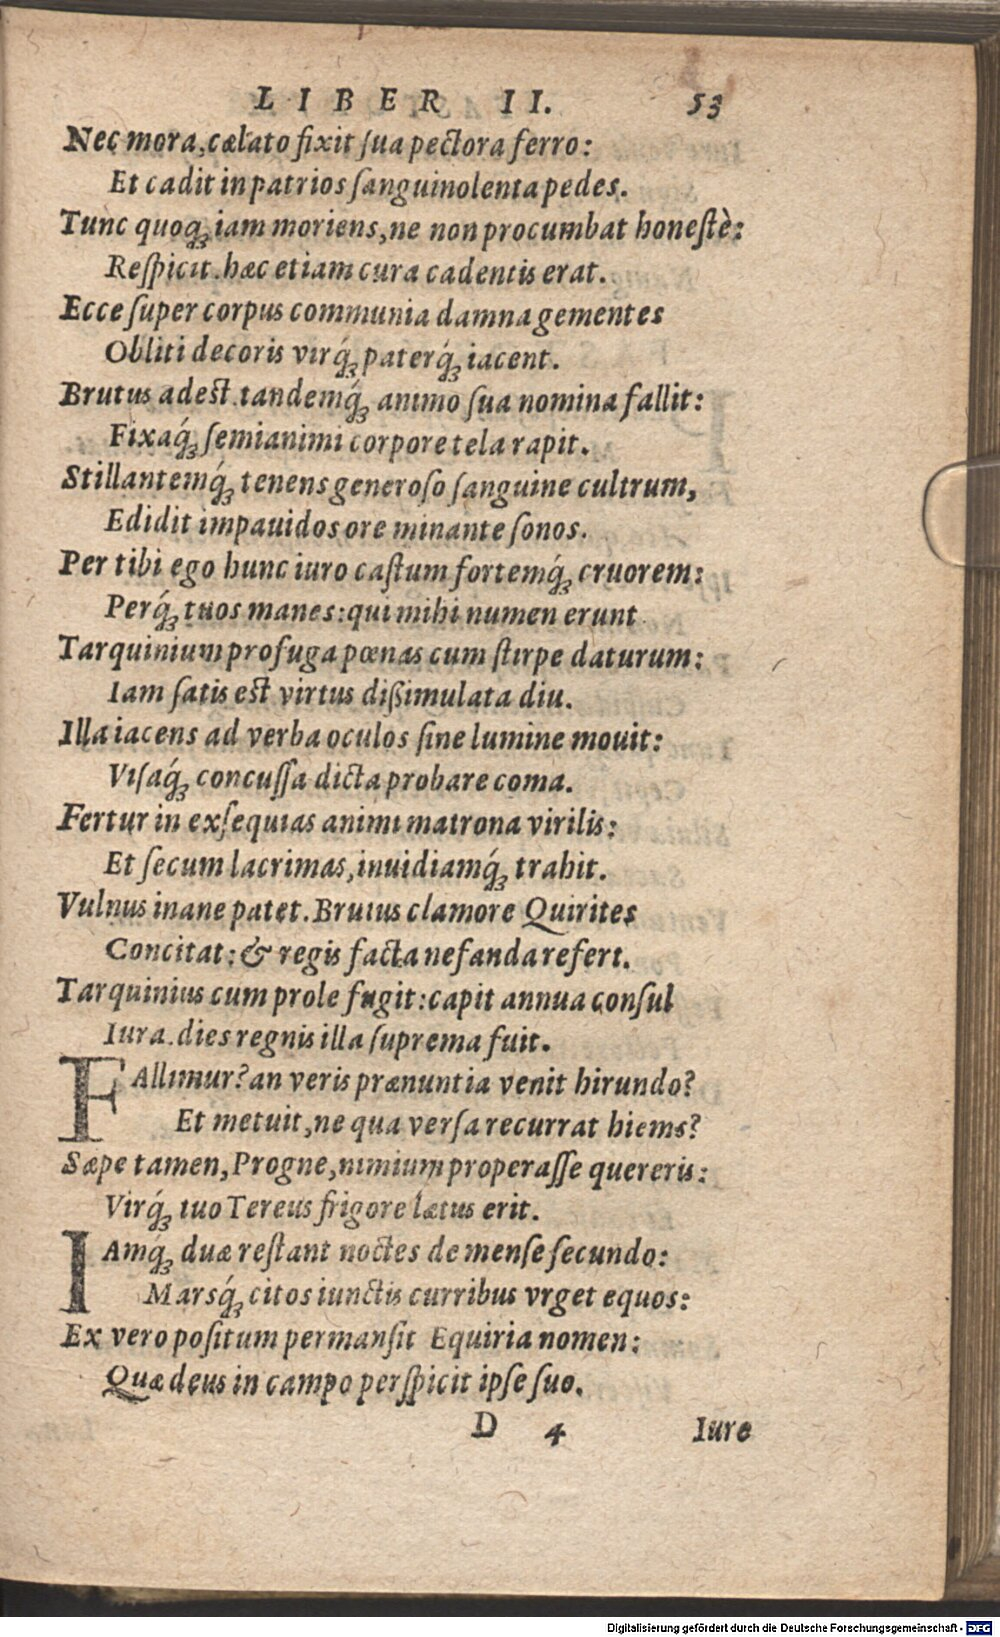 LIBER II. 53
Nec mora, cælato fixit ſua pectora ferro:
Et cadit in patrios ſanguinolenta pedes.
Tunc quoq́ꝫ iam moriens, ne non procumbat honeſtè:
Reſpicit. hæc etiam cura cadentis erat.
Ecce ſuper corpus communia damna gementes
Obliti decoris virq́ꝫ paterq́ꝫ iacent.
Brutus adest. tandemq́ꝫ animo ſua nomina fallit:
Fixaq́ꝫ ſemianimi corpore tela rapit.
Stillantemq́ꝫ tenens generoſo ſanguine cultrum,
Edidit impauidos ore minante ſonos.
Per tibi ego hunc iuro caſtum fortemq́ꝫ cruorem:
Perq́ꝫ tuos manes: qui mihi numen erunt
Tarquinium profuga pœnas cum ſtirpe daturum:
Iam ſatis est virtus dißimulata diu.
Illa iacens ad verba oculos ſine lumine mouit:
Viſaq́ꝫ concuſſa dicta probare coma.
Fertur in exſequias animi matrona virilis:
Et ſecum lacrimas, inuidiamq́ꝫ trahit.
Vulnus inane patet. Brutus clamore Quirites
Concitat: & regis facta nefanda refert.
Tarquinius cum prole fugit: capit annua conſul
Iura. dies regnis illa ſuprema fuit.
FAllimur? an veris prænuntia venit hirundo?
Et metuit, ne qua verſa recurrat hiems?
Sæpe tamen, Progne, nimium properaſſe quereris:
Virq́ꝫ tuo Tereus frigore lætus erit.
IAmq́ꝫ duæ reſtant noctes de menſe ſecundo:
Marsq́ꝫ citos iunctis curribus vrget equos:
Ex vero poſitum permanſit Equiria nomen:
Quæ deus in campo perſpicit ipſe ſuo.
D 4 Iure
Digitalisierung gefördert durch die Deutsche Forschungsgemeinschaft - DFG